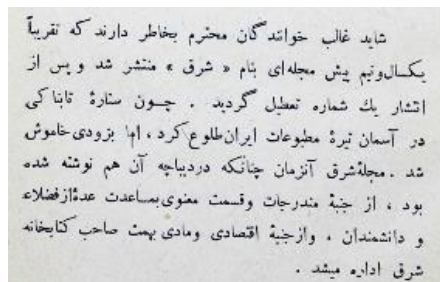 شاید غالب خوانندگان محترم بخاطر دارند که تقریباً
یکسال‌ونیم پیش مجله‌ای بنام « شرق » منتشر شد و پس از
انتشار یك شماره تعطیل گردید . چون ستارهٔ تابناکی
در آسمان تیرهٔ مطبوعات ایران طلوع کرد ، اما بزودی خاموش
شد . مجلهٔ شرق آنزمان چنانکه دردیباچه آن هم نوشته شده
بود ، از جنبهٔ مندرجات وقسمت معنوی بمساعدت عدهٔ ازفضلاء
و دانشمندان . وازجنبهٔ اقتصادی ومادی بهمت صاحب کتابخانه
شرق اداره میشد .